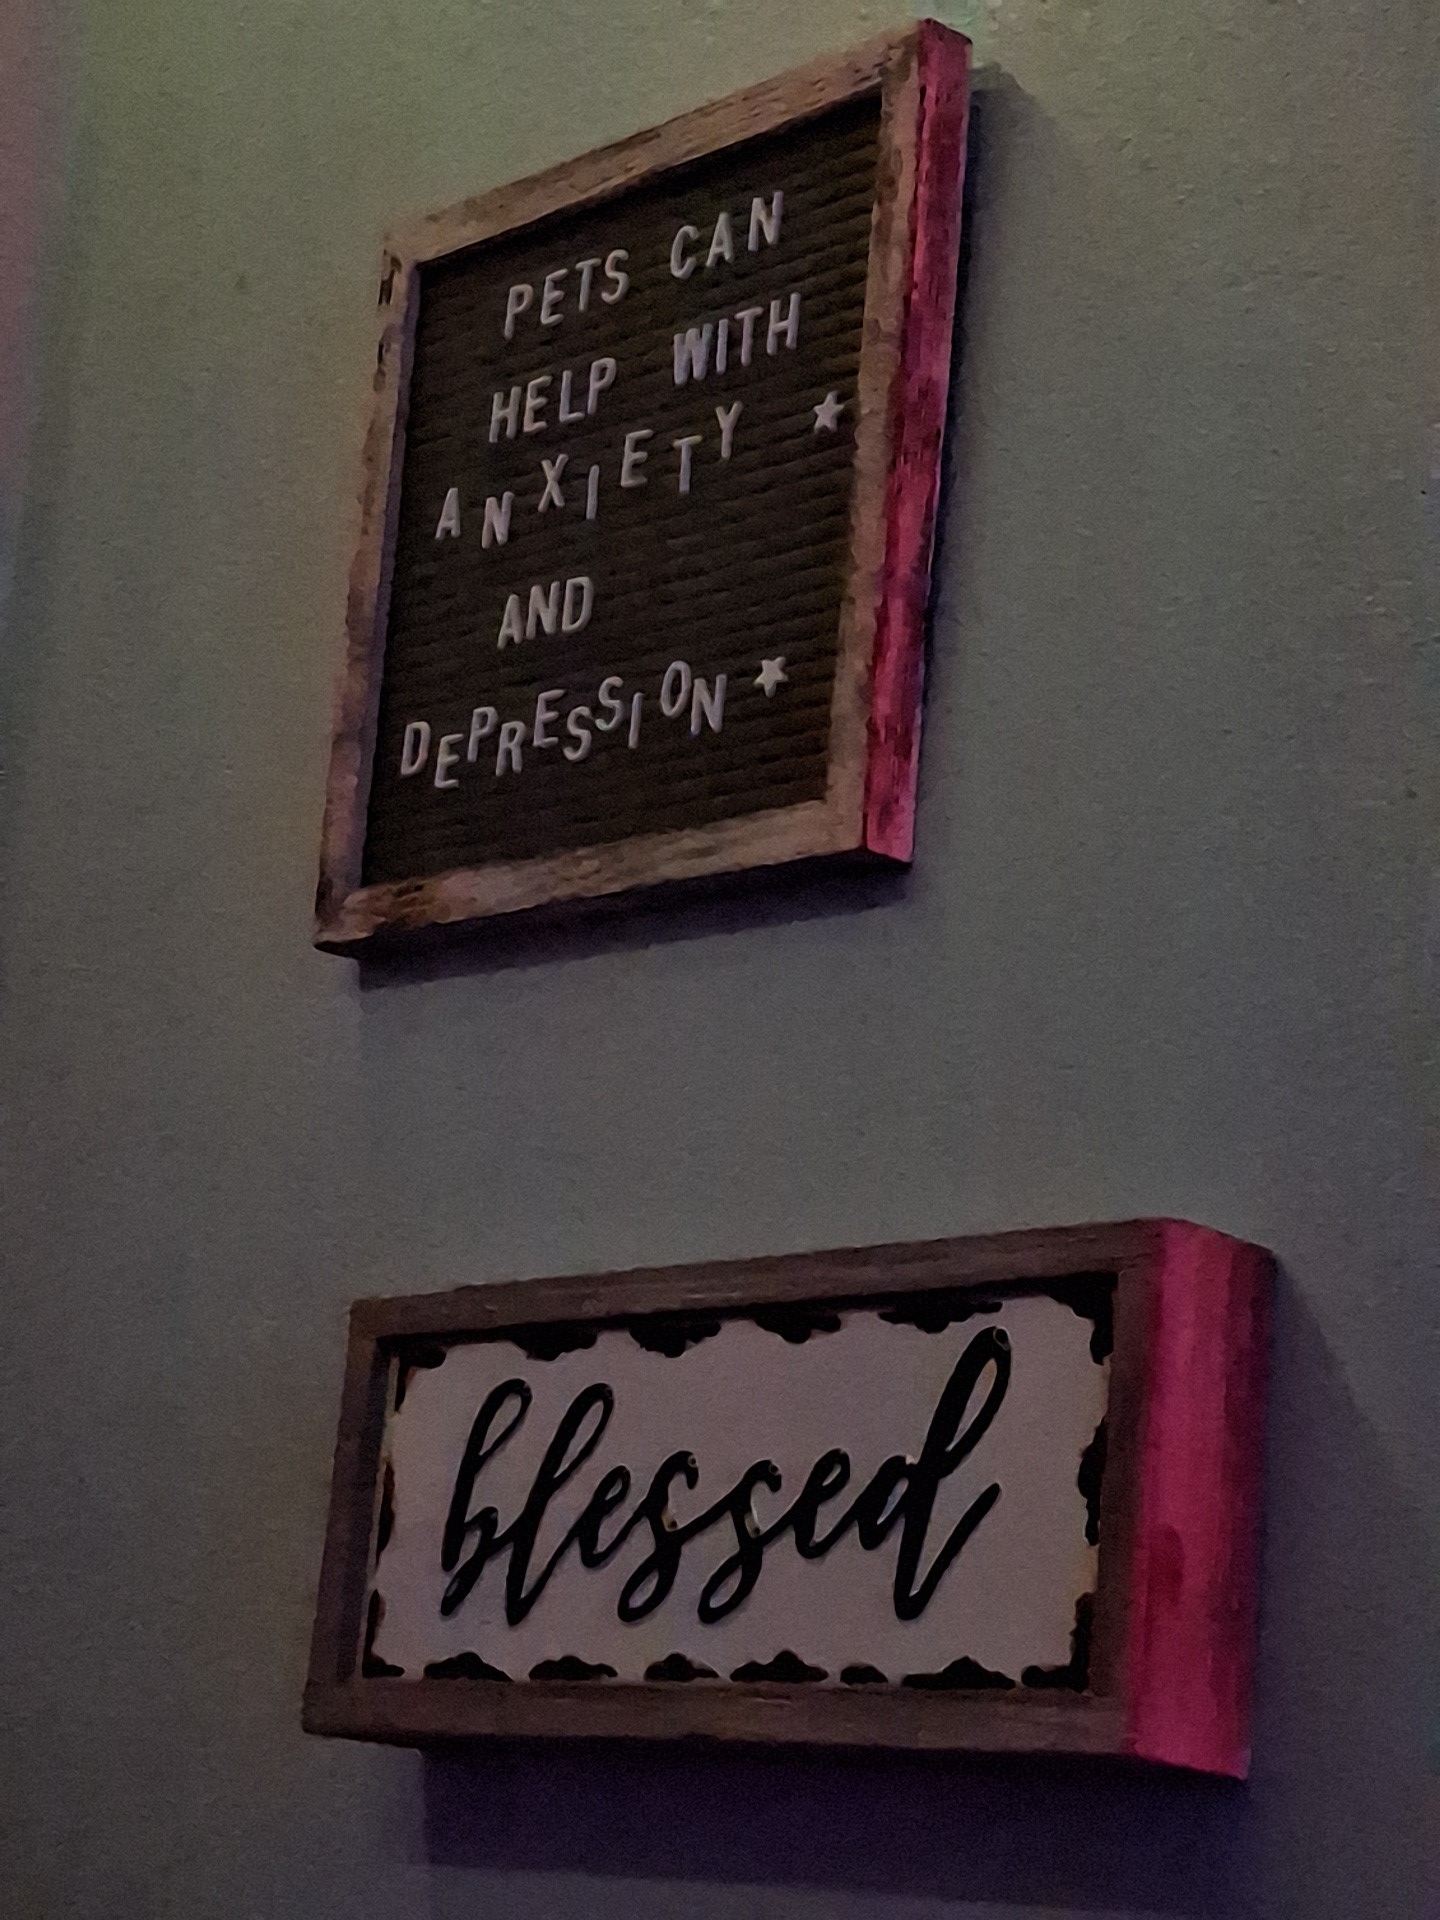 PETS CAN
HELP WITH
ANXIETY ★
AND
DEPRESSION ★
blessed